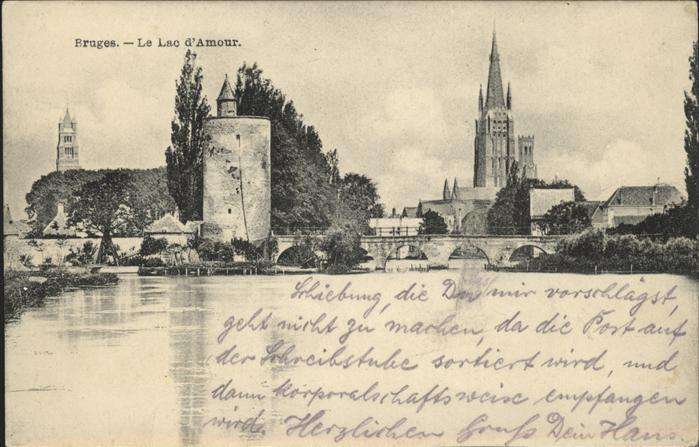 Bruges. — Le Lac d'Amour.
Schiebung, die Du mir vorschlägst,
geht nicht zu machen, da die Post auf
der Schreibstube sortiert wird, und
dann korporalschaftsweise empfangen
wird. Herzlichen Gruß Dein Hans